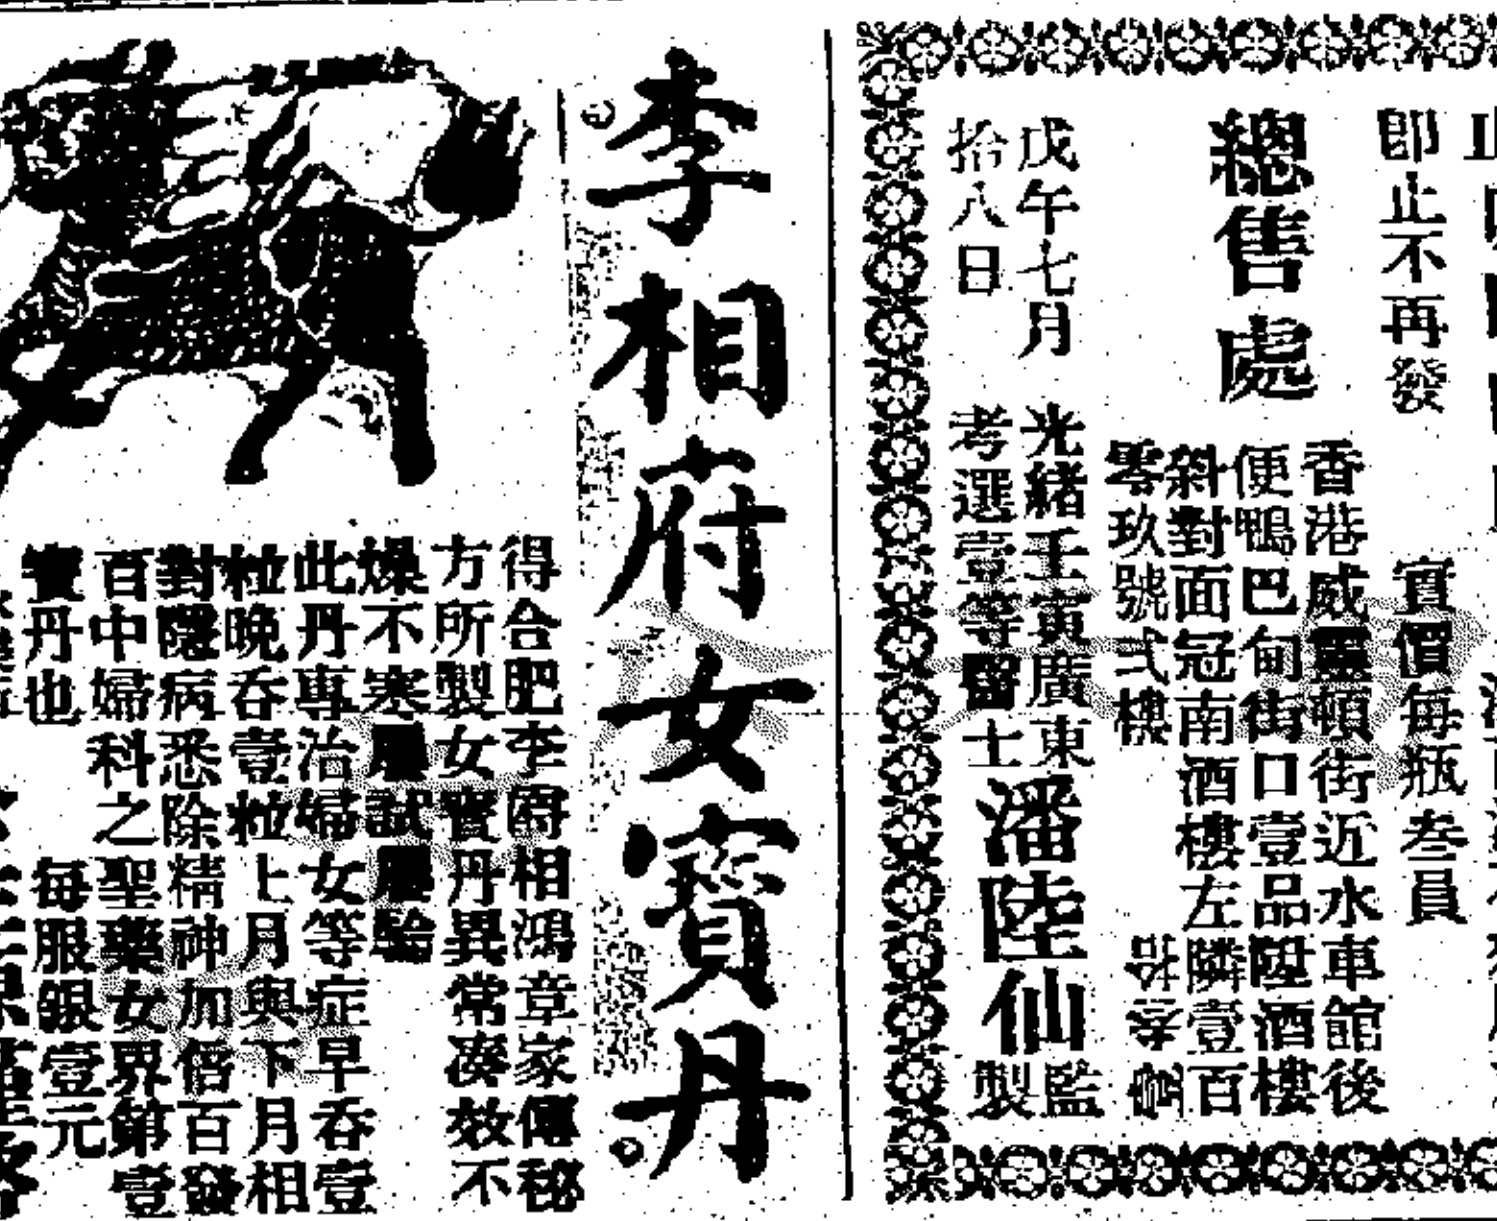 即止不再發
實價每瓶叁員
總售處
香港威靈頓街近水車館後
便鴨巴甸街口壹品陞酒樓
斜對面冠南酒樓左隣壹百
零玖號式樓
戊午七月
拾八日
光緒壬寅廣東
考選壹等醫士
潘陸仙
監製
李相府女寶丹
得合肥李爵相鴻章家傳秘
方所製女寶丹異常凑效不
燥不寒屢試屢驗
此丹專治婦女等症早吞壹
粒晚吞壹粒上月與下月相
對隱病悉除精神加倍百發
百中婦科之聖藥女界第壹
寶丹也
每服銀壹元